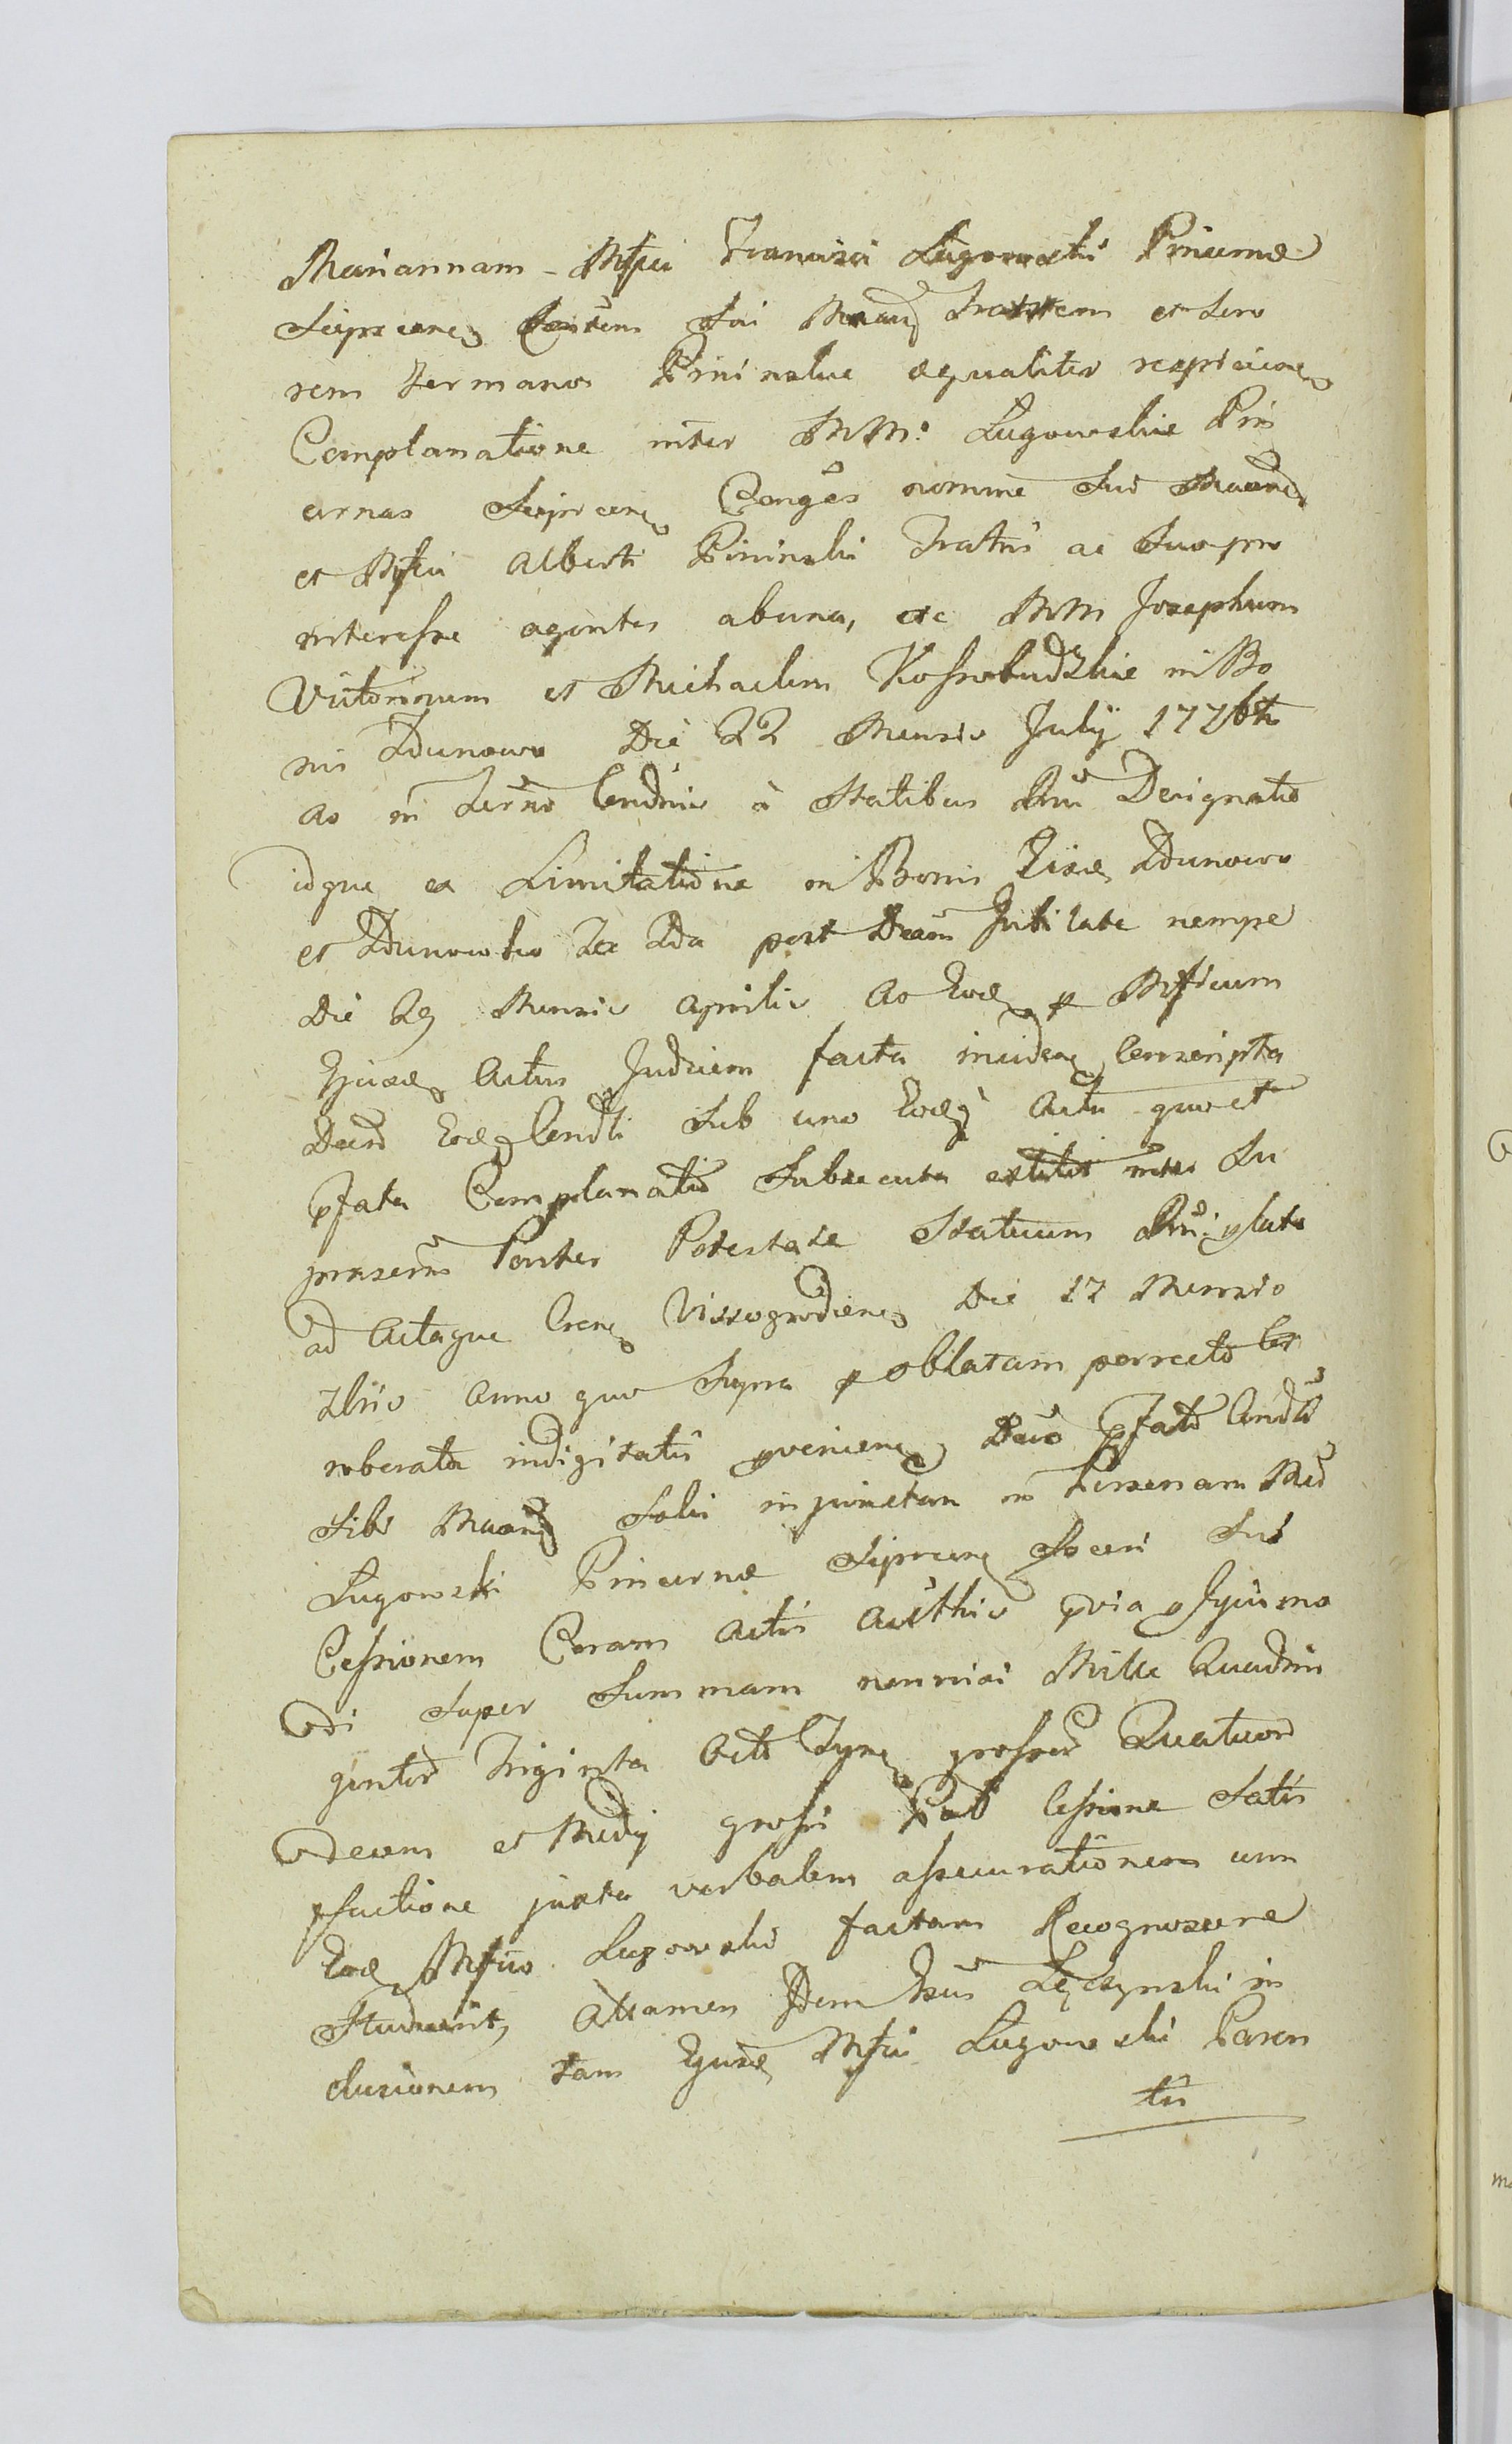 Mariannam Mfici Francisci Lugowski Pincernæ
Sieprcen Consem Sui Maand Fratrem et Soro
rem Germanos Pininskie æqualiter respicien
Complanatione inter MM: Lugowskie Pin
cernas Sieprcen Conges nomine Suo Maand
et Mfici Alberti Pininski Fratris ac Suo pro
interesse agentes ab una, ac MM Josephum
Victorinum et Michaelem Kossobudzkie in Bo
nis Zdunowo Die 22 Mensis July 177
Ao in Termo Condnio à Statibus Designato
idque ex Limitatione in Bonis Iisd Zdunowo
et Zdunowko Fer 2da post Dcam Jubilate nempe
Die 29 Mensis Aprilis Ao Eod p Mficum
Ejusd Actus Judicem facta incidenr Conscripta
Decro Eod Condli Sub uno Eodq Actu quo et
pfata Complanatio Subsecuta extitit inter Su
prasens Partes Potestate Statuum plato
ad Actaque Cren Vissogrodien Die 17 Mensis
Xbris Anno quo Supra p oblatam porrecto Cor
roberata indigitatis pvenienr Decro pfato Condli
Sibi Maand Solvi injunctam in Personam Mci
Lugowski Pincernæ Sieprcen Soceri Sui
Cessionem Coram Actis Aucthis pvia pssima
di Super Summam nonnisi Mille Quadrin
gentor Triginta Octo Tynf grossor Quatuor
decem et Medij grossi Pro Cessione Satis
pfactione juxta verbalem assecurationem cum
Eod Mfico Lugowski factam Recognoscere
Studuerit, Attamen Idem Gsus Lęczynski in
clusionem tam Ejusd Mfici Lugowski Paren
tis